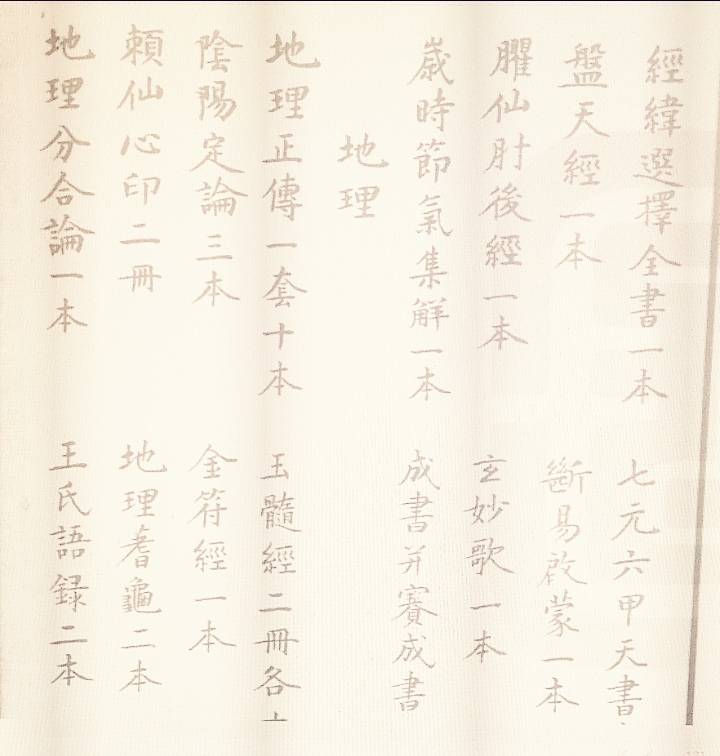 經緯選擇全書一本 七元六甲天書
盤天經一本 斷易啟蒙一本
臞仙肘後經一本 玄妙歌一本
歲時節氣集解一本 成書并賽成書
地理
地理正傳一套十本 玉髓經二冊各十
陰陽定論三本 金符經一本
賴仙心印二冊 地理耆龜二本
地理分合論一本 王氏語録二本